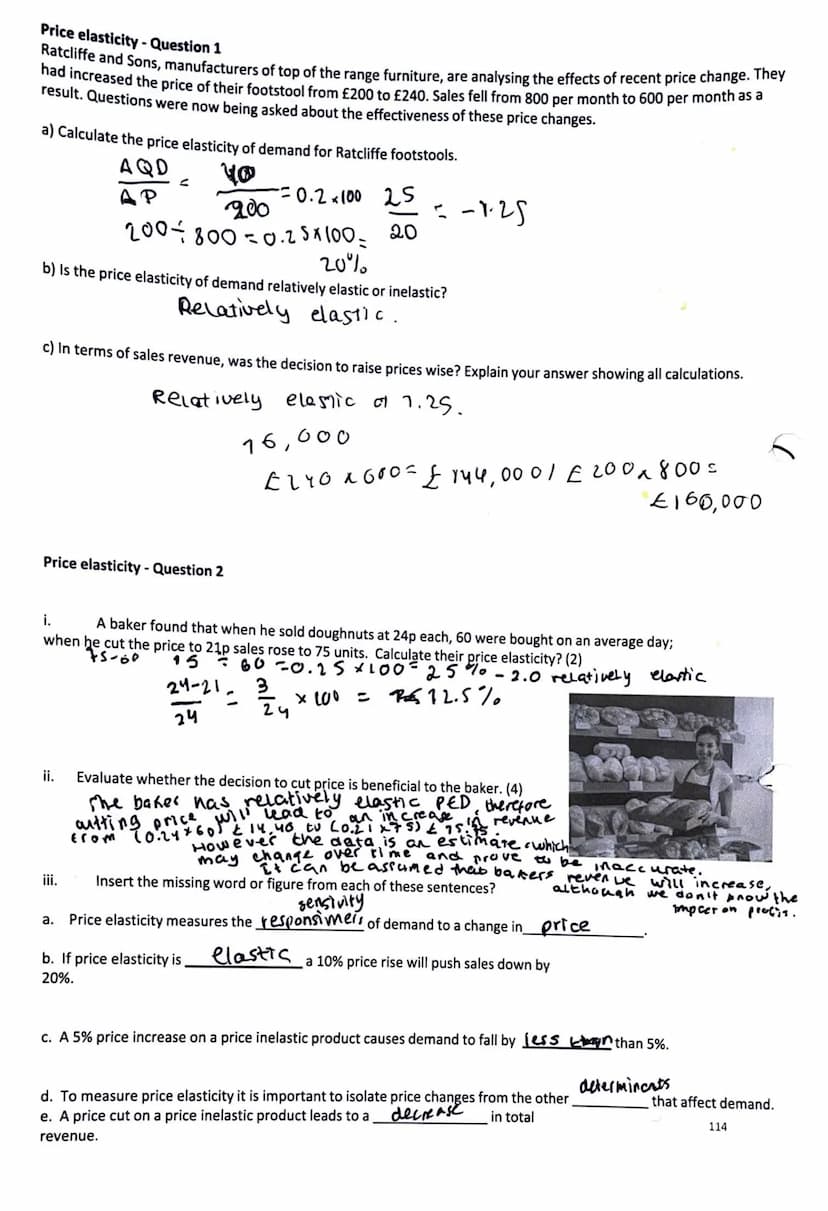 Price elasticity - Question 1
Ratcliffe and Sons, manufacturers of top of the range furniture, are analysing the effects of recent price change. They
had increased the price of their footstool from £200 to £240. Sales fell from 800 per month to 600 per month as a
result. Questions were now being asked about the effectiveness of these price changes.
a) Calculate the price elasticity of demand for Ratcliffe footstools.
ΔQD / ΔP = 40 / 200 = 0.2 × 100 25 / 20 = -1.25
200 ÷ 800 = 0.25 × 100 =
20%
b) Is the price elasticity of demand relatively elastic or inelastic?
Relatively elastic.
c) In terms of sales revenue, was the decision to raise prices wise? Explain your answer showing all calculations.
Relatively elastic at 1.25.
16,000
£240 x 600 = £144,000 / £200 x 800 =
£160,000
Price elasticity - Question 2
i. A baker found that when he sold doughnuts at 24p each, 60 were bought on an average day;
when he cut the price to 21p sales rose to 75 units. Calculate their price elasticity? (2)
75-60 15 ÷ 60 = 0.25 × 100 = 25% - 2.0 relatively elastic
24-21 / 24 = 3 / 24 × 100 = 12.5%
ii. Evaluate whether the decision to cut price is beneficial to the baker. (4)
The baker has relatively elastic PED, therefore
cutting price will lead to an increase in revenue
from (0.24×60) £14.40 to (0.21×75) £15.75.
However the data is an estimate which
may change over time and prove to be inaccurate.
It can be assumed that bakers revenue will increase,
although we don't know the
impact on profit.
iii. Insert the missing word or figure from each of these sentences?
sensivity
a. Price elasticity measures the responsivness of demand to a change in price.
b. If price elasticity is elastic a 10% price rise will push sales down by
20%.
c. A 5% price increase on a price inelastic product causes demand to fall by less than than 5%.
determinants
d. To measure price elasticity it is important to isolate price changes from the other ______ that affect demand.
e. A price cut on a price inelastic product leads to a decrease in total
revenue.
114